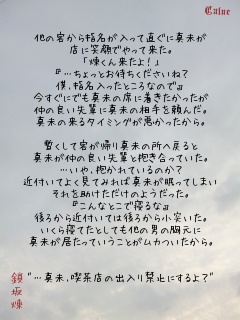 Calue
他の客から指名が入って直ぐに真未が
店に笑顔でやって来た。
「煉くん来たよ！」
『…ちょっとお待ちくださいね？
僕、指名入ったところなので』
今すぐにでも真未の席に着きたかったが
仲の良い先輩に真未の相手を頼んだ。
真未の来るタイミングが悪かったから。
暫くして客が帰り真未の所へ戻ると
真未が仲の良い先輩と抱き合っていた。
…いや、抱かれているのか？
近付いてよく見てみれば真未が眠ってしまい
それを助けただけのようだった。
『こんなとこで寝るな』
後ろから近付いては後ろから小突いた。
いくら寝てたとしても他の男の胸元に
真未が居たっていうことがムカついたから。
鎖坂煉
"…真未、喫茶店の出入り禁止にするよ？"